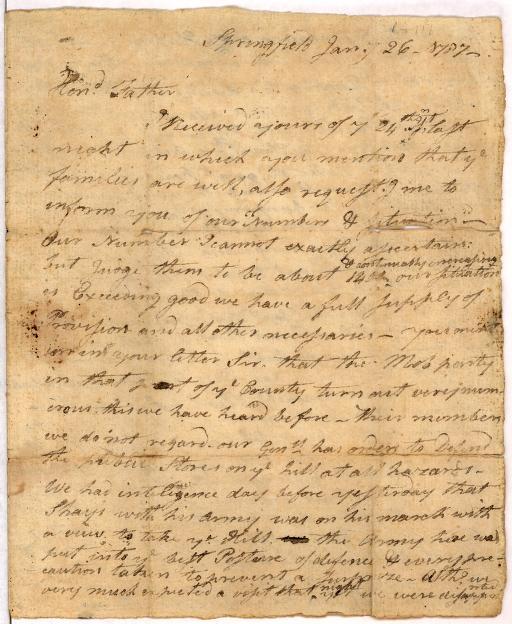 Springfield Jany 26 - 1787 -
Hon'd Father
I Received yours of ye 24th Inst last
night in which you mention that ye
families are well, also request'd me to
inform you of our Numbers & situation -
Our Number I cannot exactly ascertain:
but Judge them to be about 1400 & continually encreasing our situation
is Exceeding good we have a full supply of
Provision and all other necessaries - you
in your letter Sir. that the Mob party
in that part of ye County turn out very num
erous. this we have heard before - their numbers
we do not regard. our Genll has orders to Defend
the public Stores on ye hill at all hazards -
We had inteligence day before yesterday that
Shays with his Army was on his march with
a view to take ye Hill. the Army here was
put into ye best Posture of defence & every pre
caution taken to prevent a surprize - Altho we
very much expected a visit that night yet we were